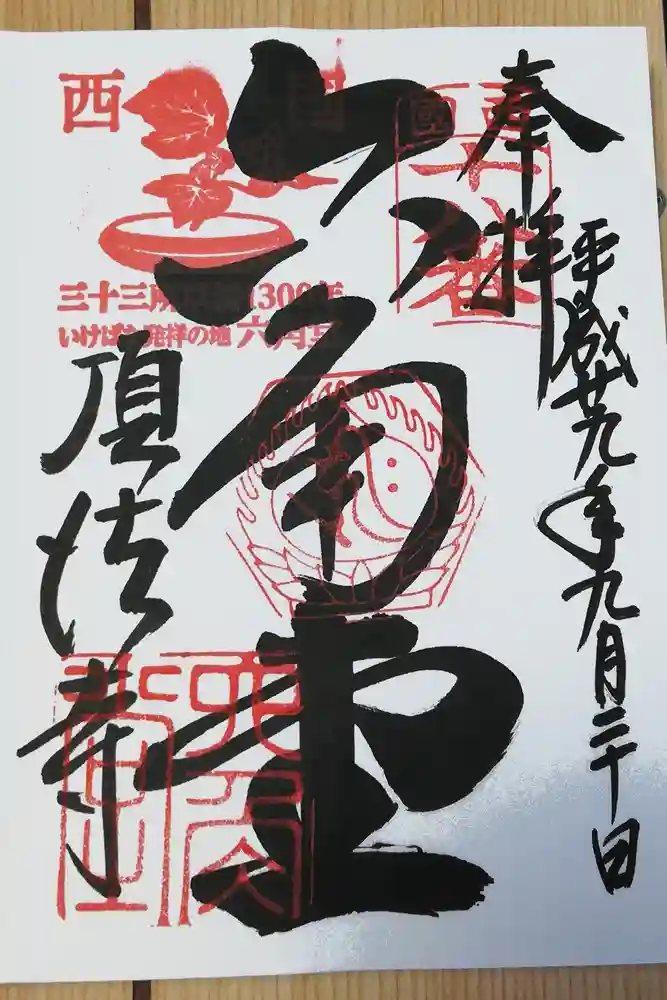 奉拝
平成廿九年九月三十日
西國十八番
六角堂
頂法寺
西国
三十三所草創1300年
いけばな発祥の地 六角堂
六角堂印